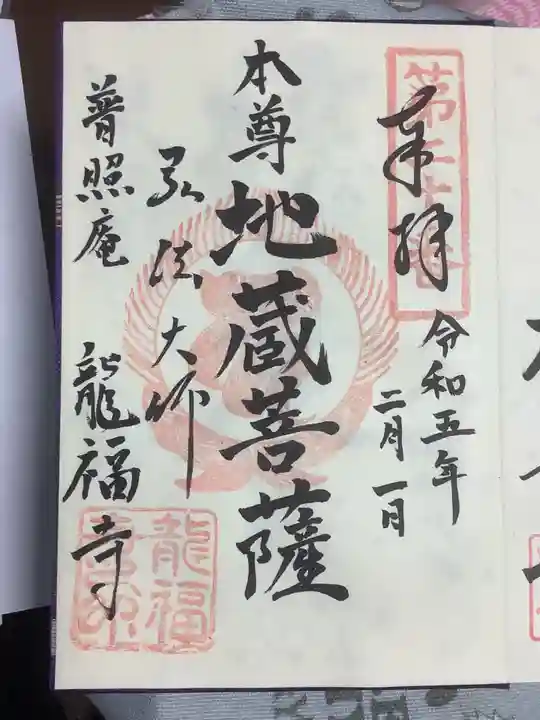 奉拝
令和五年
二月一日
本尊
地蔵菩薩
弘法大師
普照庵
龍福寺
龍福